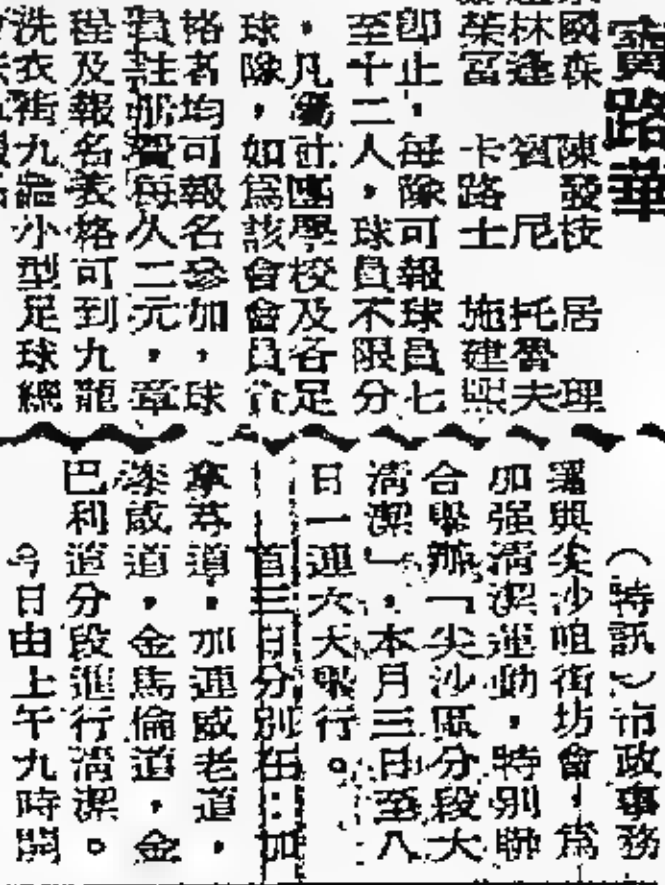 寶路華
國森 陳發枝 居理
林逢 賓尼 托魯夫
榮富 卡路士 施建熙
即止，每隊可報球員七
至十二人，球員不限分
，凡屬社團學校及各足
球隊，如為該會會員資
格者均可報名參加，球
員註冊費每人二元，章
程及報名表格可到九龍
洗衣街九龍小型足球總
（特訊）市政事務
署與尖沙咀街坊會，為
加强清潔運動，特別聯
合舉辦「尖沙區分段大
清潔」，本月三日至八
日一連六天舉行。
首三日分別在：加
拿芬道，加連威老道，
漆咸道，金馬倫道，金
巴利道分段進行清潔。
今日由上午九時開